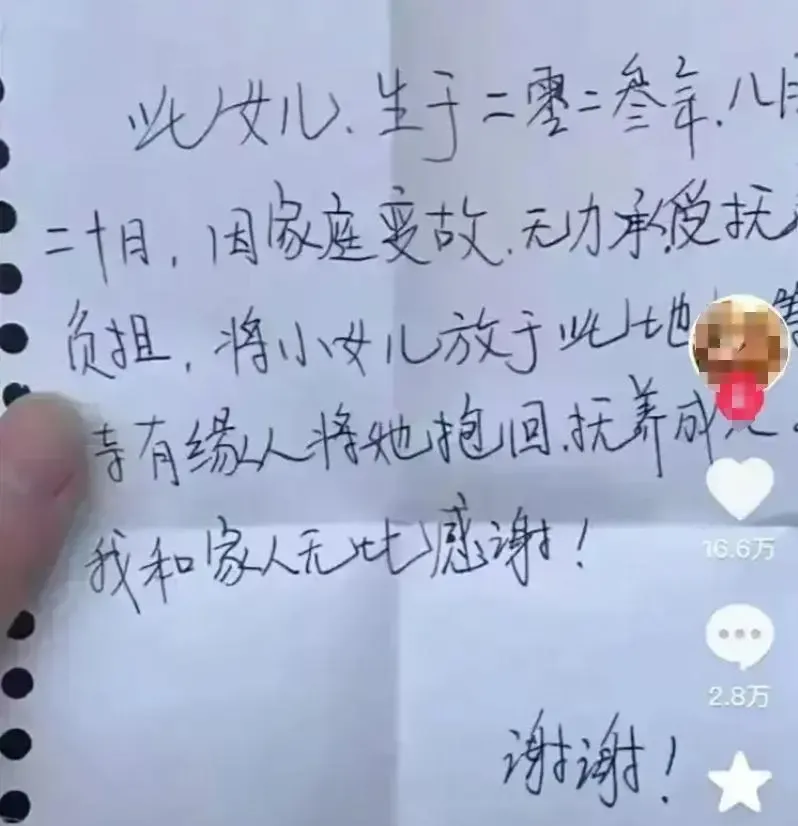 此女儿、生于二零二叁年.八月
二十日，因家庭变故.无力承受抚
负担，将小女儿放于此地
寺有缘人将她抱回.抚养成
我和家人无比感谢！
谢谢！
16.6万
2.8万